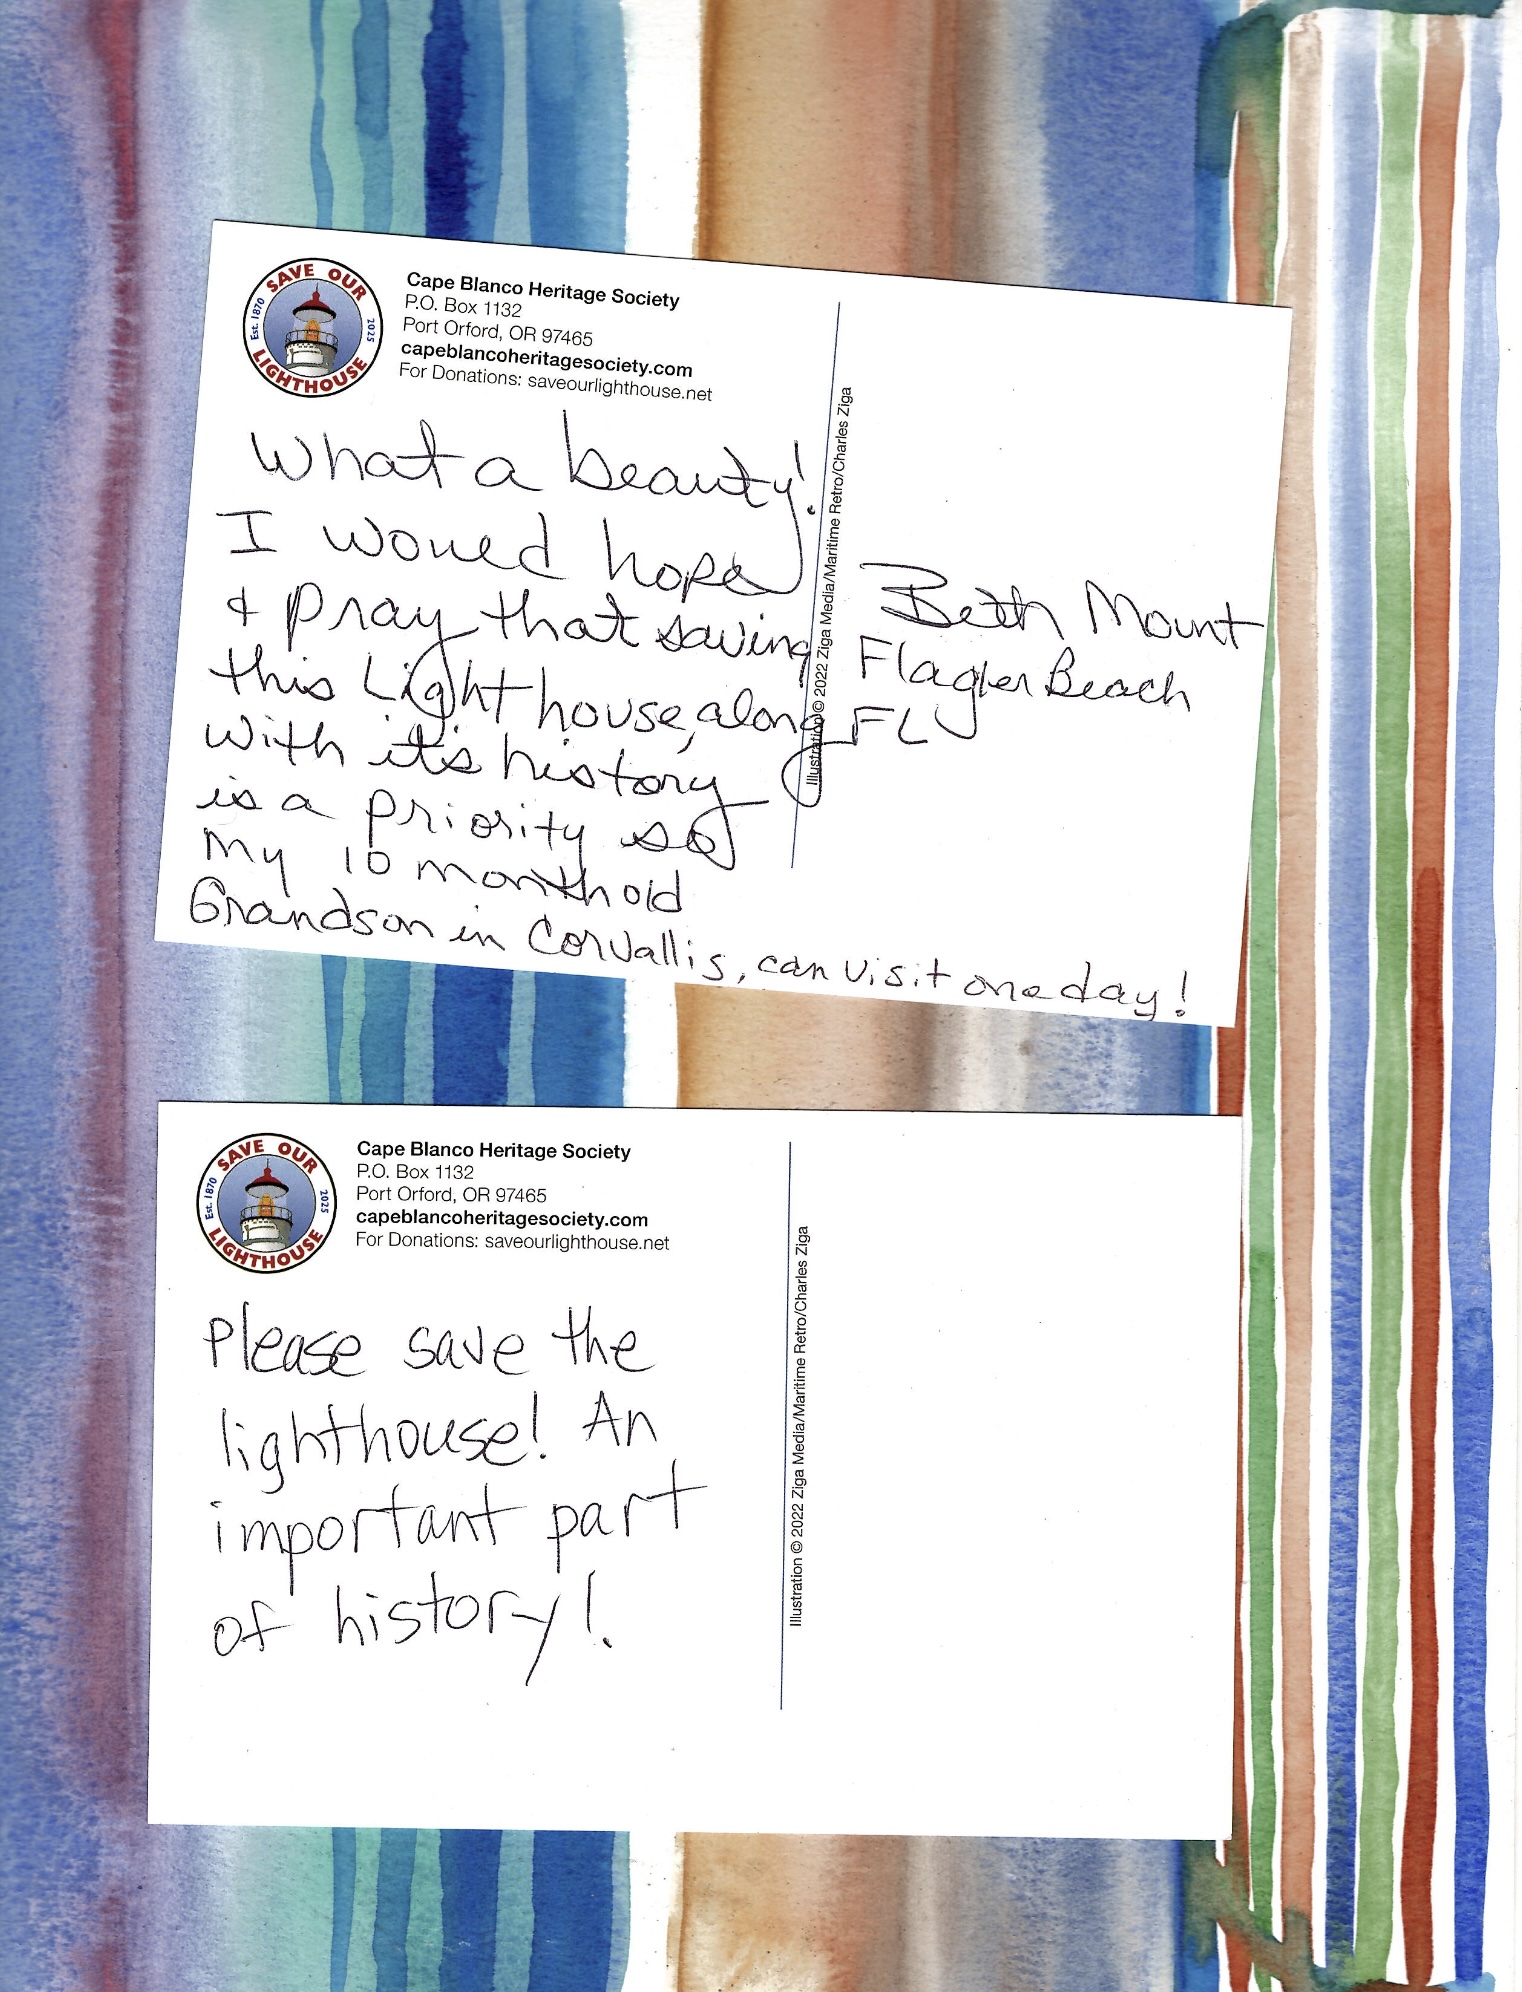 SAVE OUR
LIGHTHOUSE
Est. 1870
2025
Cape Blanco Heritage Society
P.O. Box 1132
Port Orford, OR 97465
capeblancoheritagesociety.com
For Donations: saveourlighthouse.net
What a beauty!
I would hope
& pray that saving
this Lighthouse, along
with it's history
is a priority so
my 10 month old
Grandson in Corvallis, can visit one day!
Illustration © 2022 Ziga Media/Maritime Retro/Charles Ziga
Beth Mount
Flagler Beach
FL
SAVE OUR
LIGHTHOUSE
Est. 1870
2025
Cape Blanco Heritage Society
P.O. Box 1132
Port Orford, OR 97465
capeblancoheritagesociety.com
For Donations: saveourlighthouse.net
Please save the
lighthouse! An
important part
of history!
Illustration © 2022 Ziga Media/Maritime Retro/Charles Ziga